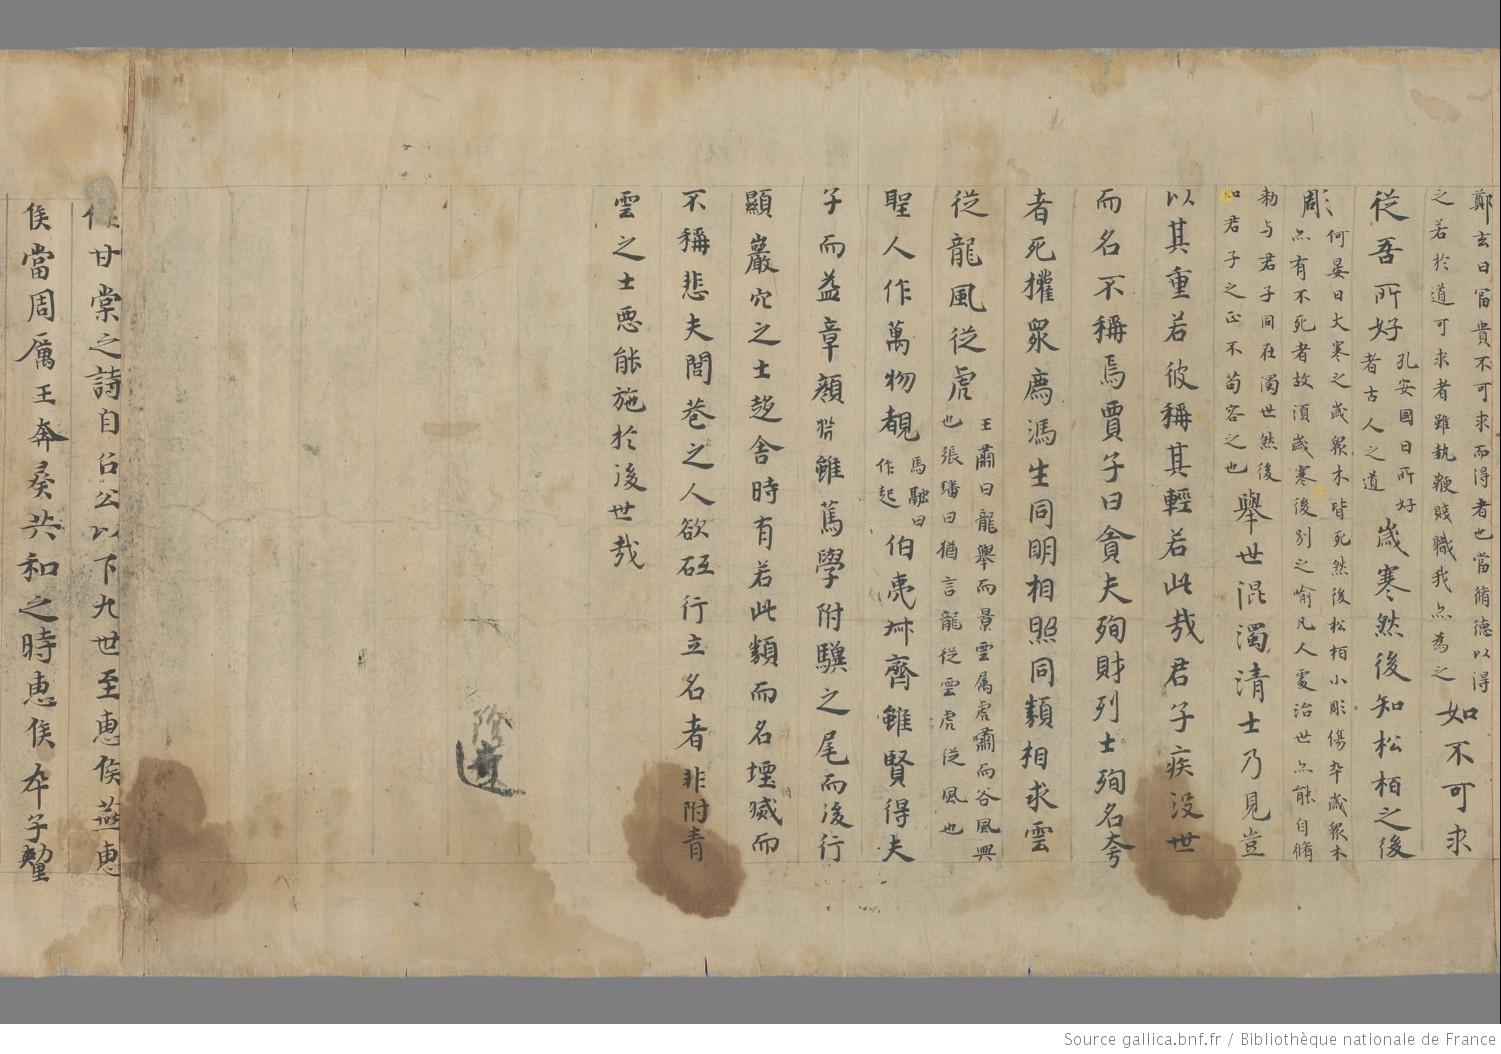 鄭玄曰冨貴不可求而得者也當脩德以得
之若於道可求者雖執鞭賤職我亦為之 如不可求
從吾所好 孔安國曰所好者古人之道 歲寒然後知松栢之後
彫 何晏曰大寒之歲衆木皆死然後松栢小彫傷平歲衆木
亦有不死者故湏歲寒後别之喻凡人處治世亦能自脩
勑与君子同在濁世然後
知君子之正不苟容之也 舉世混濁清士乃見豈
以其重若彼稱其輕若此哉君子疾没世
而名不稱焉賈子曰貪夫殉財列士殉名夸
者死權衆庶馮生同明相照同類相求雲
從龍風從虎 王肅曰龍舉而景雲属虎嘯而谷風興
也張璠曰猶言龍從雲虎從風也
聖人作萬物覩 馬融曰作起 伯夷叔齊雖賢得夫
子而益章顏 雖篤學附驥之尾而後行
顯巖穴之士趍舍時有若此類而名堙威而
不稱悲夫閭巷之人欲砥行立名者非附青
雲之士恶能施於後世哉
甘棠之詩自召公以下九世至惠侯燕惠
侯當周厲王奔彘共和之時惠侯卒子釐
Source gallica.bnf.fr / Bibliothèque nationale de France